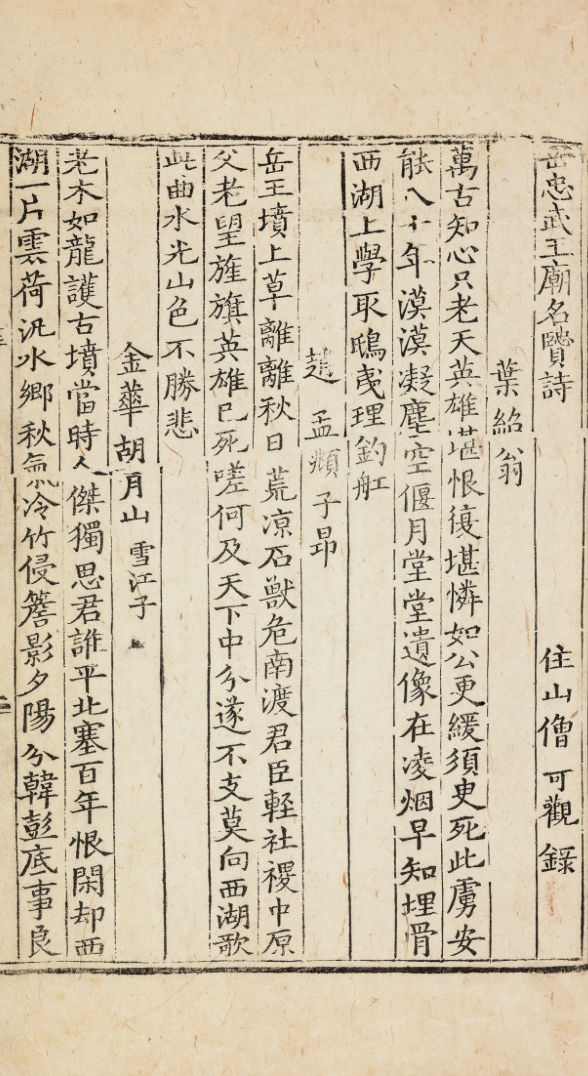 岳忠武王廟名賢詩 住山僧 可觀 錄
葉紹翁
萬古知心只老天英雄堪恨復堪憐如公更緩須臾死此虜安
能八十年漠漠凝塵空偃月堂堂遺像在凌烟早知埋骨
西湖上學取鴟夷理釣舡
趙孟頫子昂
岳王墳上草離離秋日荒凉石獸危南渡君臣軽社稷中原
父老望旌旗英雄已死嗟何及天下中分遂不支莫向西湖歌
此曲水光山色不勝悲
金華胡月山 雪江子
老木如龍護古墳當時人傑獨思君誰平北塞百年恨閑却西
湖一片雲荷汎水鄉秋氣冷竹侵簷影夕陽分韓彭底事良